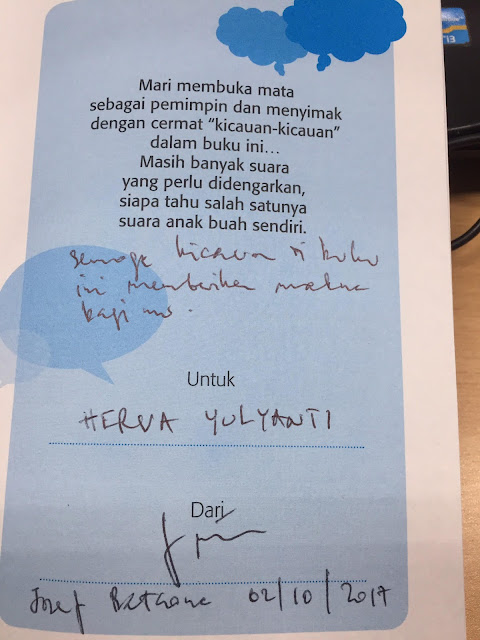 Mari membuka mata
sebagai pemimpin dan menyimak
dengan cermat “kicauan-kicauan”
dalam buku ini...
Masih banyak suara
yang perlu didengarkan,
siapa tahu salah satunya
suara anak buah sendiri.
semoga kicauan di buku
ini memberikan makna
bagi mu.
Untuk
HERVA YULYANTI
Dari
Josef Bataona 02/10/2017